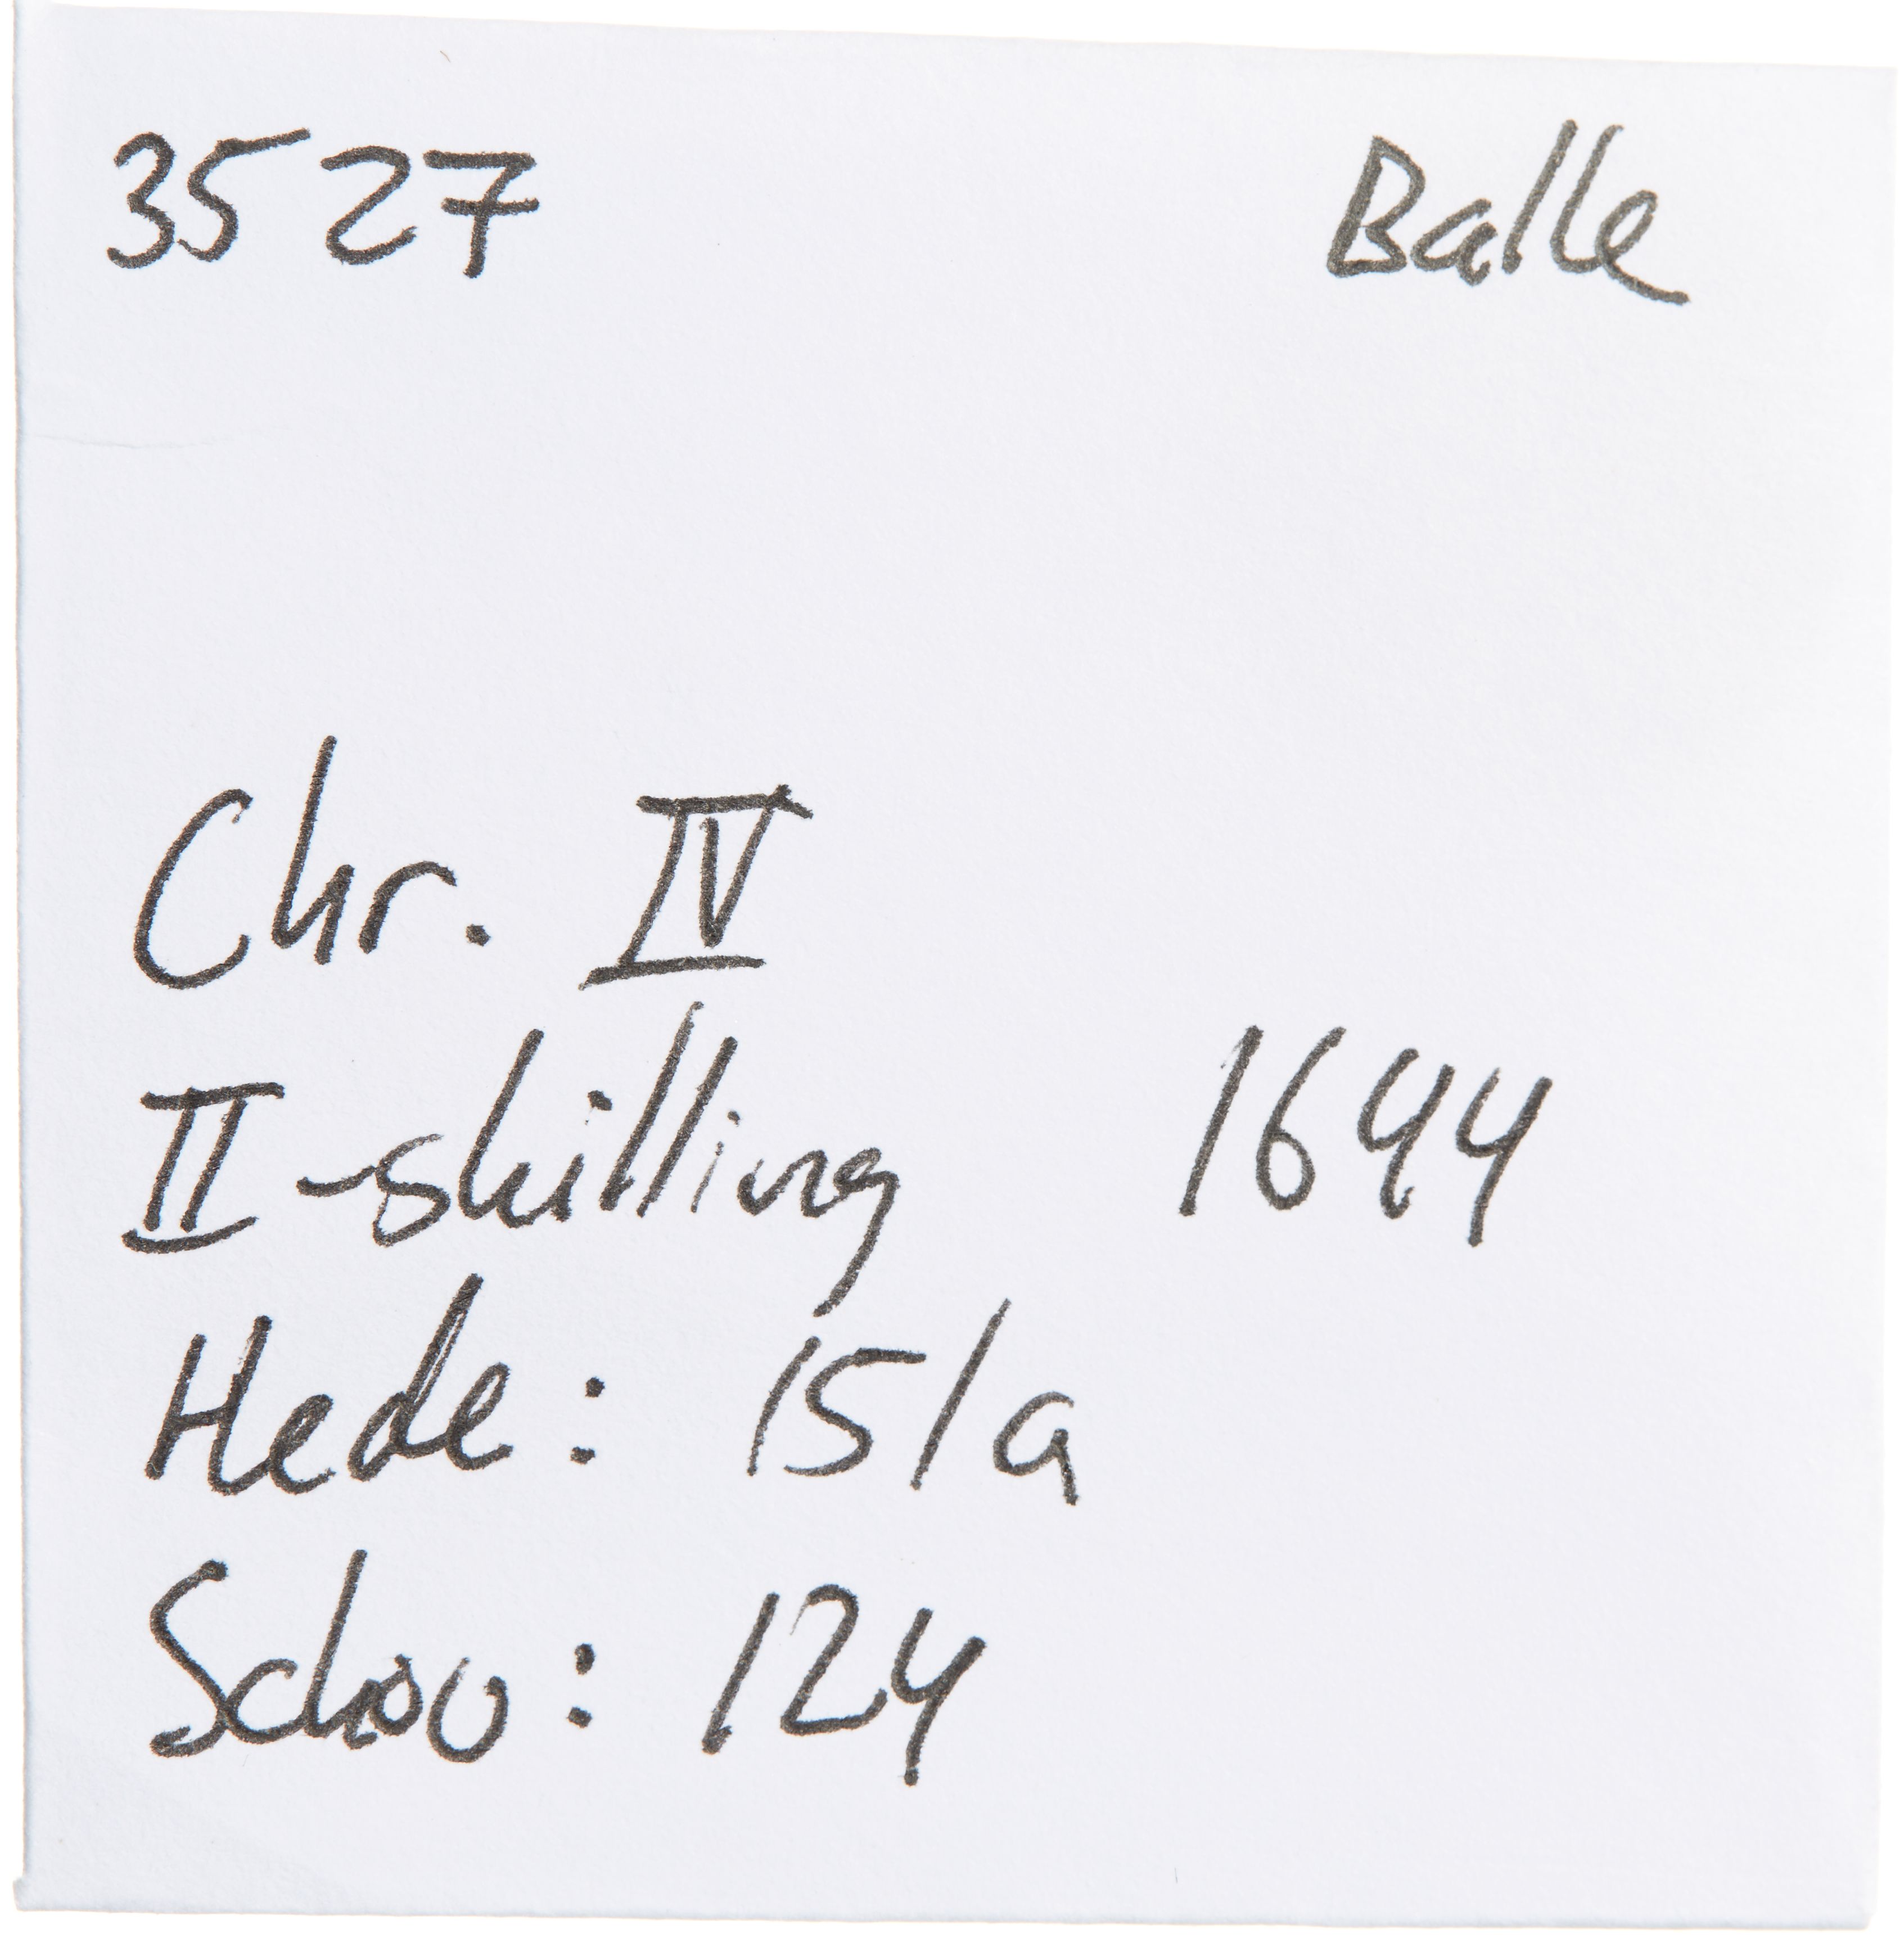 3527 Balle
Chr. IV
II-skilling 1644
Hede: 15/a
Schou: 124